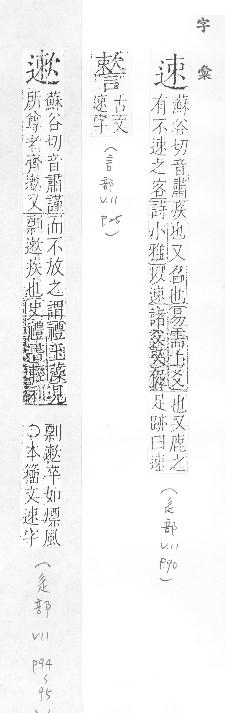 字彙
速
蘇谷切音肅疾也又召也易需上六
有不速之客詩小雅以速諸父又鹿之
足跡曰速
(辵部
V.11
P90)
古文
速字
(言部
V.11
P25)
遬
蘇谷切音肅謹而不放之謂禮玉藻見
所尊者齊遬又剽遬疾也史禮書輕利
剽遬卒如熛風
○本籀文速字
(辵部
V11
P94
95